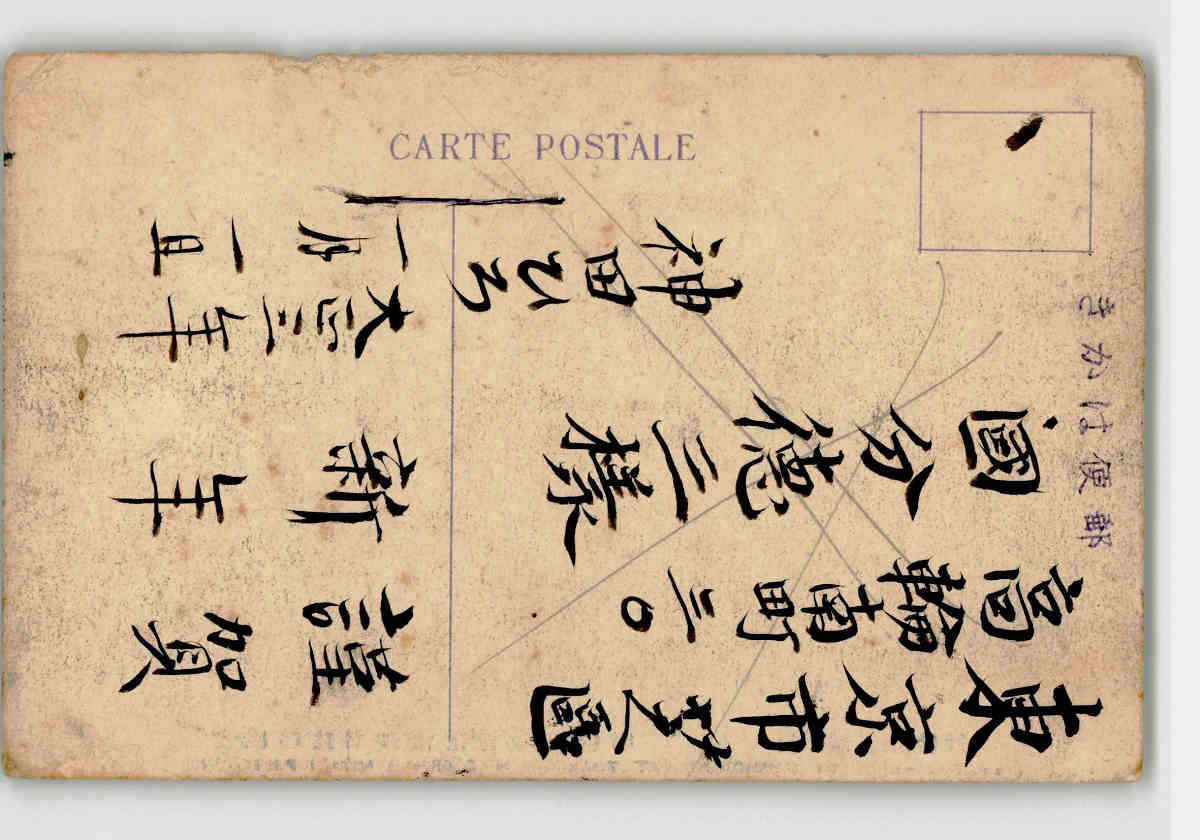 郵便はかき
CARTE POSTALE
東京市芝區
高輪南町三〇
國分徳三様
神田ひろ
謹賀
新年
大正三年
一月一旦